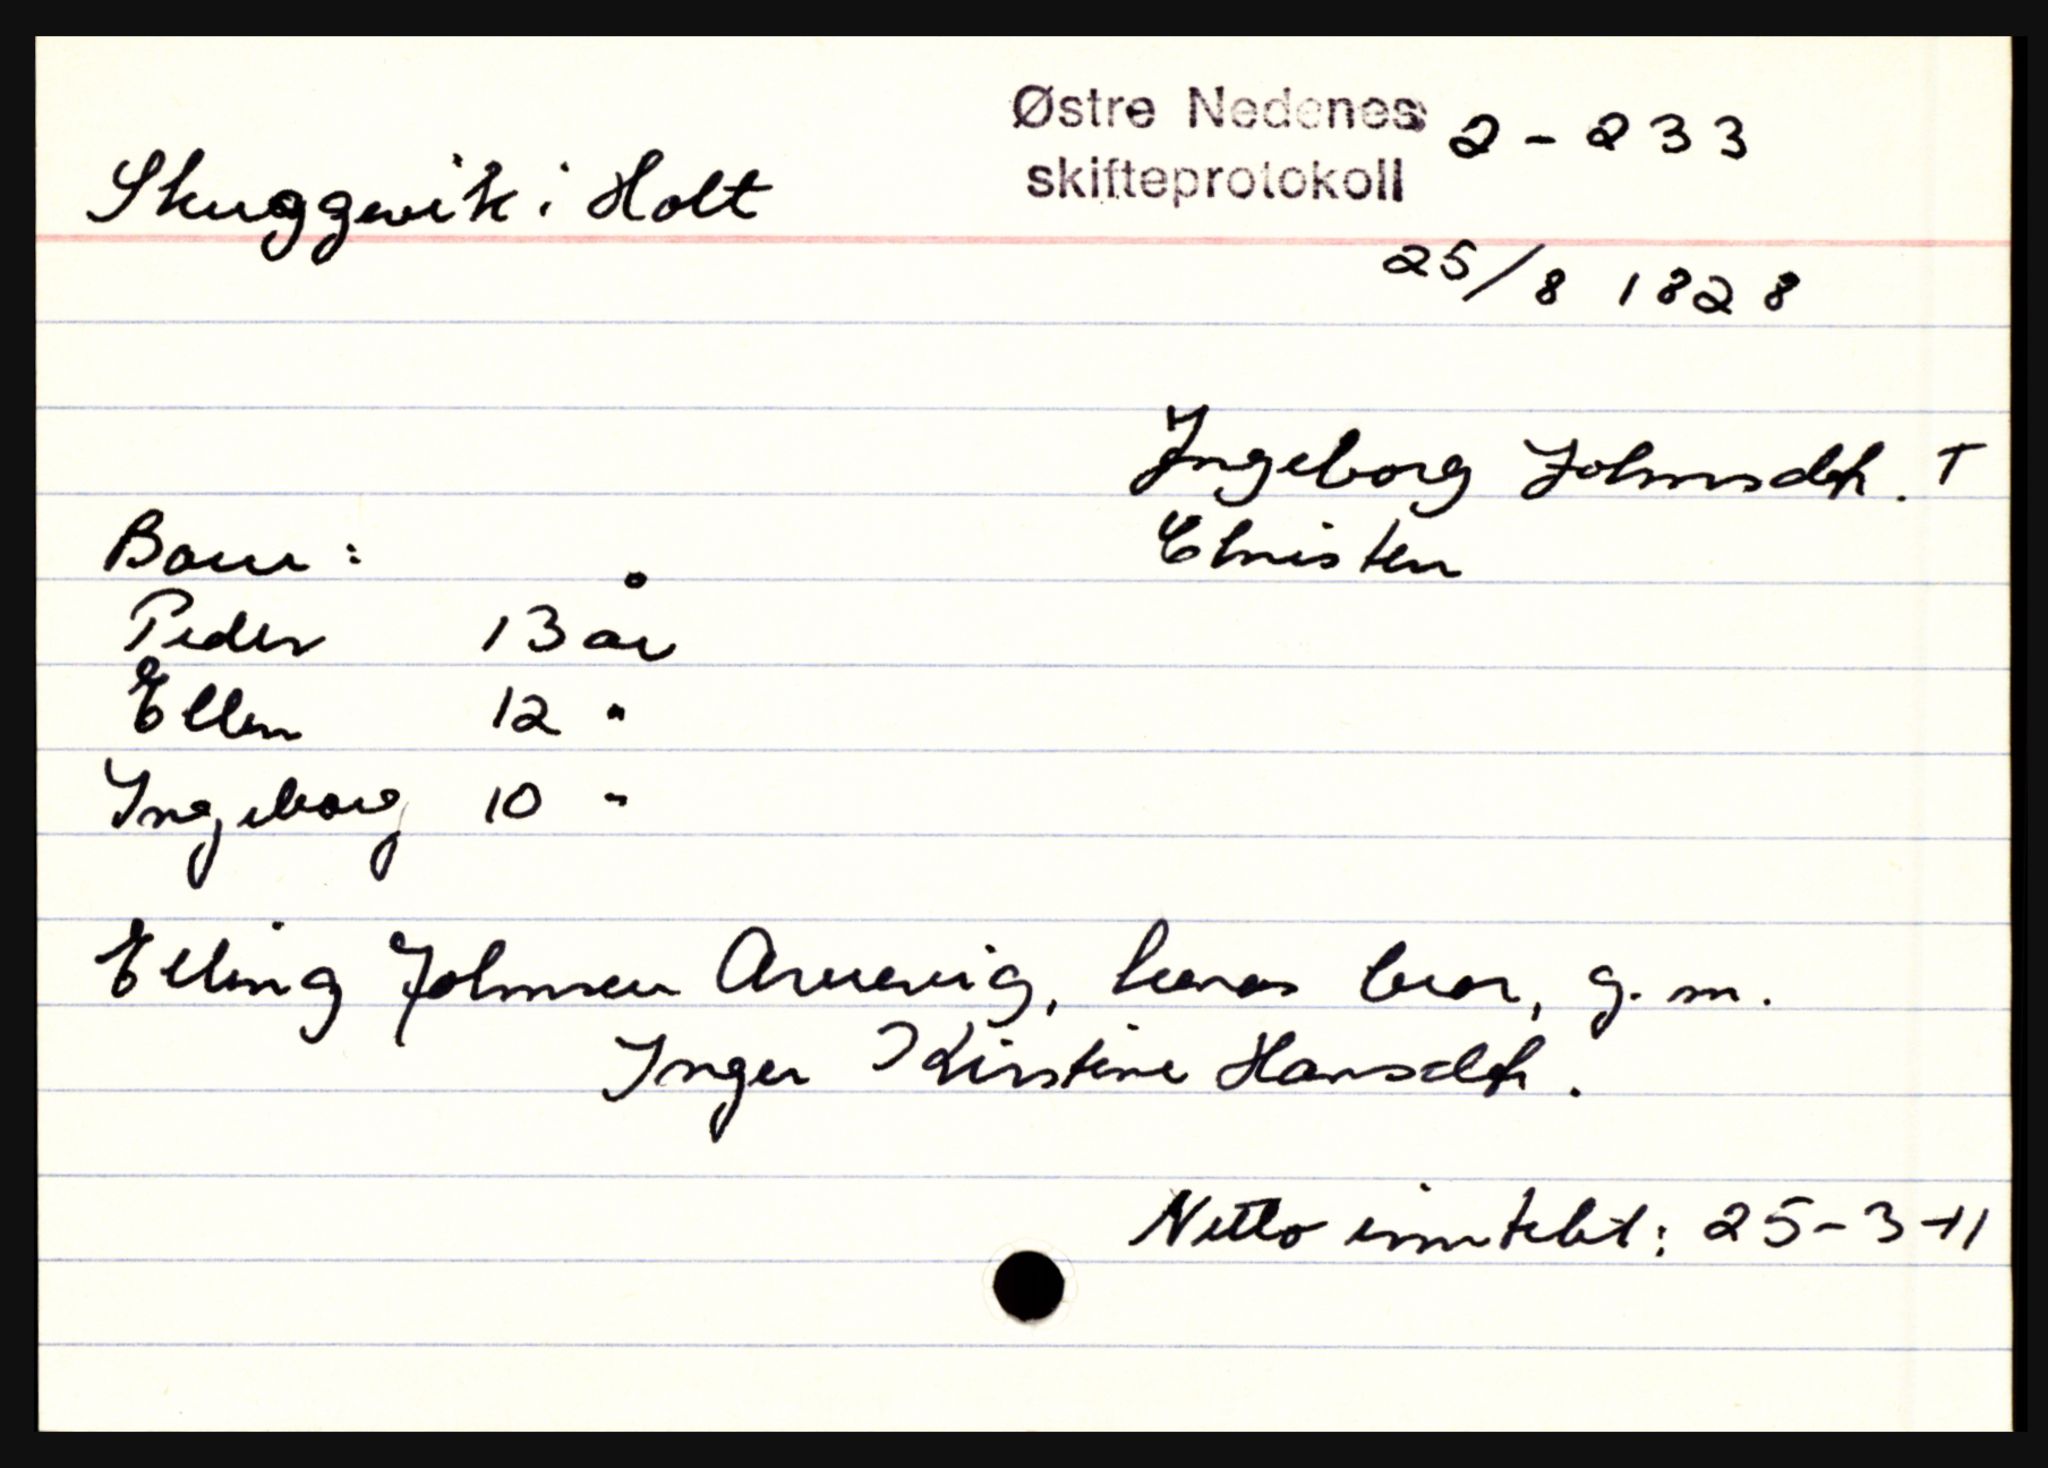 Østre Nedenes 2 - 233
skifteprotokoll
Skuggevik i Holt
25/8 1828
Ingeborg Johnsdtr. †
Christen
Barn :
Peder 13 år
Ellen 12 "
Ingeborg 10 "
Elling Johnsen Arnevig, hennes bror, g. m.
Inger Kirstine Hansdtr.
Netto inntekt : 25 - 3 - 11